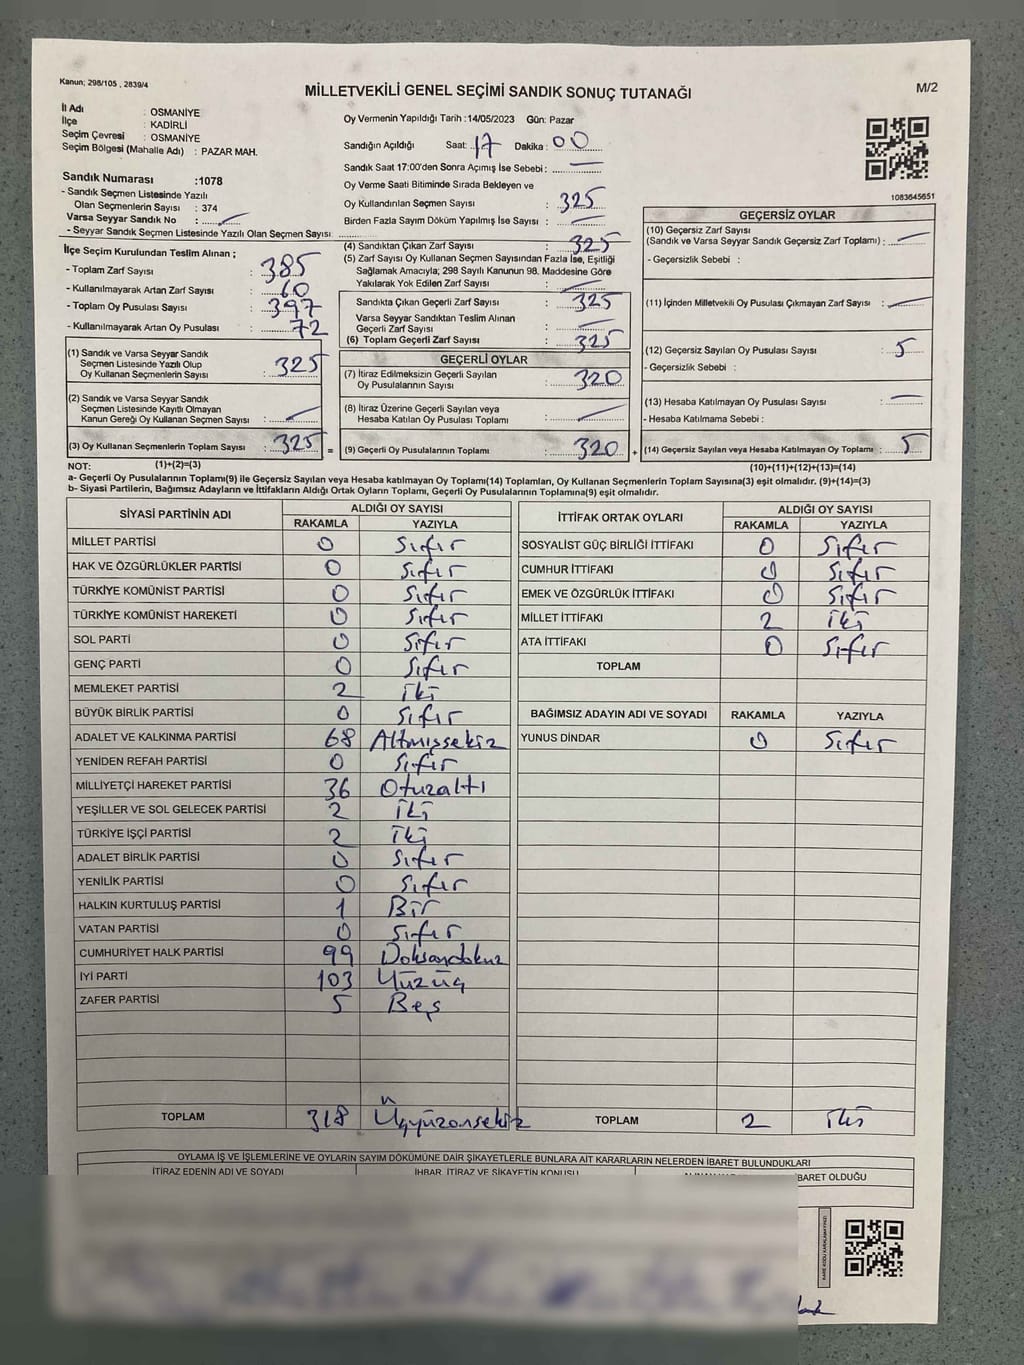 Kanun; 298/105 , 2839/4
MİLLETVEKİLİ GENEL SEÇİMİ SANDIK SONUÇ TUTANAĞI
M/2
İl Adı : OSMANİYE
İlçe : KADİRLİ
Seçim Çevresi : OSMANİYE
Seçim Bölgesi (Mahalle Adı) : PAZAR MAH.
Sandık Numarası :1078
- Sandık Seçmen Listesinde Yazılı
Olan Seçmenlerin Sayısı : 374
Varsa Seyyar Sandık No :
- Seyyar Sandık Seçmen Listesinde Yazılı Olan Seçmen Sayısı:
Oy Vermenin Yapıldığı Tarih :14/05/2023 Gün: Pazar
Sandığın Açıldığı Saat: 17 Dakika: 00
Sandık Saat 17:00'den Sonra Açımış İse Sebebi :
Oy Verme Saati Bitiminde Sırada Bekleyen ve
Oy Kullandırılan Seçmen Sayısı : 325
Birden Fazla Sayım Döküm Yapılmış İse Sayısı :
1083645651
İlçe Seçim Kurulundan Teslim Alınan ;
- Toplam Zarf Sayısı : 385
- Kullanılmayarak Artan Zarf Sayısı : 60
- Toplam Oy Pusulası Sayısı : 397
- Kullanılmayarak Artan Oy Pusulası : 72
(1) Sandık ve Varsa Seyyar Sandık
Seçmen Listesinde Yazılı Olup
Oy Kullanan Seçmenlerin Sayısı : 325
(2) Sandık ve Varsa Seyyar Sandık
Seçmen Listesinde Kayıtlı Olmayan
Kanun Gereği Oy Kullanan Seçmen Sayısı :
(3) Oy Kullanan Seçmenlerin Toplam Sayısı : 325 =
(4) Sandıktan Çıkan Zarf Sayısı : 325
(5) Zarf Sayısı Oy Kullanan Seçmen Sayısından Fazla İse, Eşitliği
Sağlamak Amacıyla; 298 Sayılı Kanunun 98. Maddesine Göre
Yakılarak Yok Edilen Zarf Sayısı :
Sandıkta Çıkan Geçerli Zarf Sayısı : 325
Varsa Seyyar Sandıktan Teslim Alınan
Geçerli Zarf Sayısı :
(6) Toplam Geçerli Zarf Sayısı : 325
GEÇERLİ OYLAR
(7) İtiraz Edilmeksizin Geçerli Sayılan
Oy Pusulalarının Sayısı : 320
(8) İtiraz Üzerine Geçerli Sayılan veya
Hesaba Katılan Oy Pusulası Toplamı :
(9) Geçerli Oy Pusulalarının Toplamı : 320 +
GEÇERSİZ OYLAR
(10) Geçersiz Zarf Sayısı
(Sandık ve Varsa Seyyar Sandık Geçersiz Zarf Toplamı) :
- Geçersizlik Sebebi :
(11) İçinden Milletvekili Oy Pusulası Çıkmayan Zarf Sayısı :
(12) Geçersiz Sayılan Oy Pusulası Sayısı : 5
- Geçersizlik Sebebi :
(13) Hesaba Katılmayan Oy Pusulası Sayısı :
- Hesaba Katılmama Sebebi :
(14) Geçersiz Sayılan veya Hesaba Katılmayan Oy Toplamı : 5
NOT: (1)+(2)=(3) (10)+(11)+(12)+(13)=(14)
a- Geçerli Oy Pusulalarının Toplamı(9) ile Geçersiz Sayılan veya Hesaba katılmayan Oy Toplamı(14) Toplamları, Oy Kullanan Seçmenlerin Toplam Sayısına(3) eşit olmalıdır. (9)+(14)=(3)
b- Siyasi Partilerin, Bağımsız Adayların ve İttifakların Aldığı Ortak Oyların Toplamı, Geçerli Oy Pusulalarının Toplamına(9) eşit olmalıdır.
SİYASİ PARTİNİN ADI ALDIĞI OY SAYISI
RAKAMLA YAZIYLA
MİLLET PARTİSİ 0 Sıfır
HAK VE ÖZGÜRLÜKLER PARTİSİ 0 Sıfır
TÜRKİYE KOMÜNİST PARTİSİ 0 Sıfır
TÜRKİYE KOMÜNİST HAREKETİ 0 Sıfır
SOL PARTİ 0 Sıfır
GENÇ PARTİ 0 Sıfır
MEMLEKET PARTİSİ 2 İki
BÜYÜK BİRLİK PARTİSİ 0 Sıfır
ADALET VE KALKINMA PARTİSİ 68 Altmışsekiz
YENİDEN REFAH PARTİSİ 0 Sıfır
MİLLİYETÇİ HAREKET PARTİSİ 36 Otuzaltı
YEŞİLLER VE SOL GELECEK PARTİSİ 2 İki
TÜRKİYE İŞÇİ PARTİSİ 2 İki
ADALET BİRLİK PARTİSİ 0 Sıfır
YENİLİK PARTİSİ 0 Sıfır
HALKIN KURTULUŞ PARTİSİ 1 Bir
VATAN PARTİSİ 0 Sıfır
CUMHURİYET HALK PARTİSİ 99 Doksandokuz
İYİ PARTİ 103 Yüzüç
ZAFER PARTİSİ 5 Beş
TOPLAM 318 Üçyüzonsekiz
İTTİFAK ORTAK OYLARI ALDIĞI OY SAYISI
RAKAMLA YAZIYLA
SOSYALİST GÜÇ BİRLİĞİ İTTİFAKI 0 Sıfır
CUMHUR İTTİFAKI 0 Sıfır
EMEK VE ÖZGÜRLÜK İTTİFAKI 0 Sıfır
MİLLET İTTİFAKI 2 İki
ATA İTTİFAKI 0 Sıfır
TOPLAM
BAĞIMSIZ ADAYIN ADI VE SOYADI RAKAMLA YAZIYLA
YUNUS DİNDAR 0 Sıfır
TOPLAM 2 İki
OYLAMA İŞ VE İŞLEMLERİNE VE OYLARIN SAYIM DÖKÜMÜNE DAİR ŞİKAYETLERLE BUNLARA AİT KARARLARIN NELERDEN İBARET BULUNDUKLARI
İTİRAZ EDENİN ADI VE SOYADI İHBAR, İTİRAZ VE ŞİKAYETİN KONUSU İBARET OLDUĞU